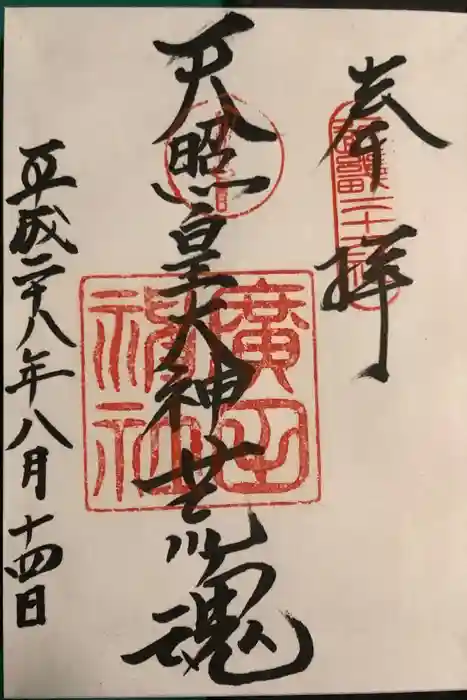 奉拝
天照皇大神荒御魂
平成二十八年八月十四日
廣田神社